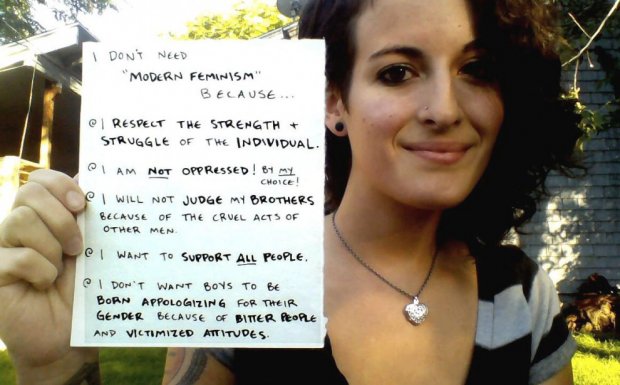 I DON'T NEED
"MODERN FEMINISM"
BECAUSE...
I RESPECT THE STRENGTH +
STRUGGLE OF THE INDIVIDUAL.
I AM NOT OPPRESSED! BY MY
CHOICE!
I WILL NOT JUDGE MY BROTHERS
BECAUSE OF THE CRUEL ACTS OF
OTHER MEN.
I WANT TO SUPPORT ALL PEOPLE.
I DON'T WANT BOYS TO BE
BORN APPOLOGIZING FOR THEIR
GENDER BECAUSE OF BITTER PEOPLE
AND VICTIMIZED ATTITUDES.